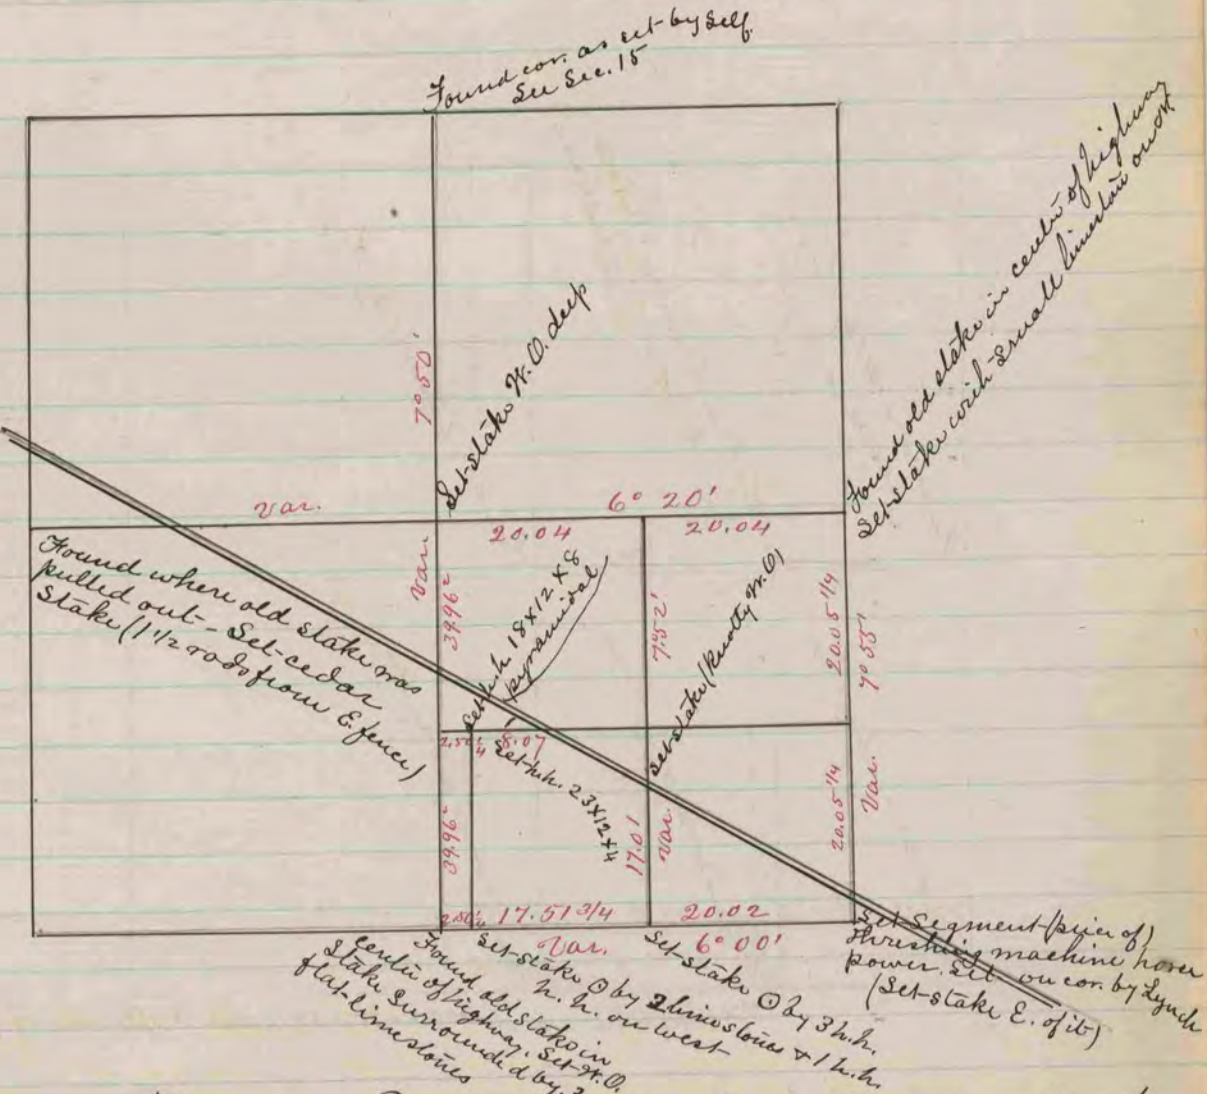 Found cor. as set by Self.
See Sec. 15
Found old stake in center of highway
Set stake with small limestone on
7° 50'
Set stake W.O. deep
Var.
6° 20'
20.04
20.04
Found where old stake was
pulled out - Set cedar
Stake (1 1/2 rods from E. fence)
Var.
39.96
Set h.h. 18x12x8
pyramidal
7° 52'
Set stake (Knotty W.O.)
20.05 1/4
7° 53'
2.50 1/4
8.07
Set h.h. 23x12x4
39.96
17.01
Var.
20.05 1/4
Var.
2.50 1/2
17.51 3/4
20.02
Var.
6° 00'
Set Segment (piece of)
threshing machine horse
power. Set on cor. by Lynch
(Set stake E. of it)
Set stake ⊙ by 3 h.h.
& 1 h.h.
Set stake ⊙ by 2 limestones
h.h. on west
Found old stake in
center of highway. Set W.O.
Stake Surrounded by
flat limestones